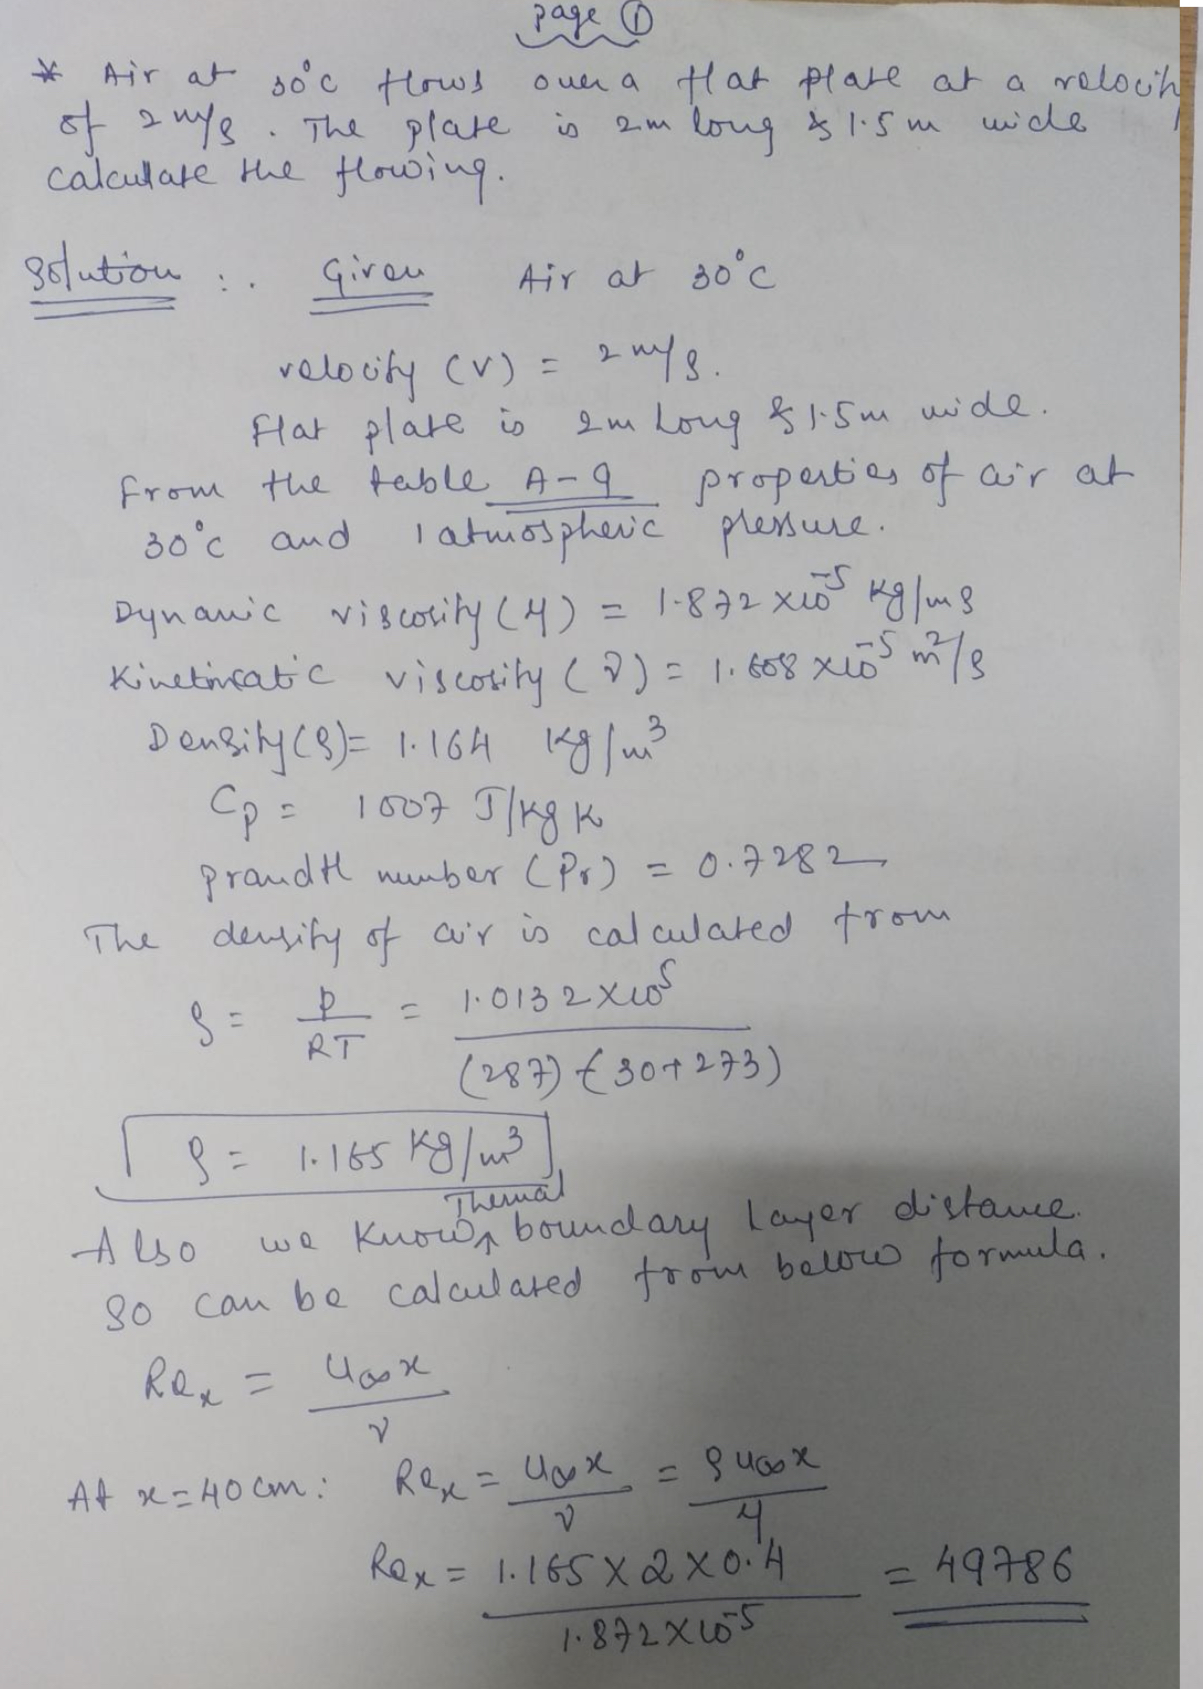 page ①
* Air at 30°C flows over a flat plate at a velocity
of 2 m/s . The plate is 2m long & 1.5m wide
calculate the flowing.
Solution :. Given Air at 30°C
velocity (v) = 2 m/s.
Flat plate is 2m long & 1.5m wide.
From the table A-9 properties of air at
30°C and 1 atmospheric pressure.
Dynamic viscosity (μ) = 1.872 ×10⁻⁵ kg/ms
Kinetimatic viscosity (ν) = 1.608 ×10⁻⁵ m²/s
Density(ρ)= 1.164 Kg/m³
Cp = 1007 J/kg K
prandtl number (Pr) = 0.7282
The density of air is calculated from
ρ = p/RT = 1.0132×10⁵ / (287) (30+273)
ρ = 1.165 Kg/m³
Also we know thermal boundary Layer distance.
so can be calculated from below formula.
Reₓ = u∞x/ν
At x=40cm: Reₓ = u∞x/ν = ρu∞x/μ
Reₓ = 1.165×2×0.4 / 1.872×10⁻⁵ = 49786